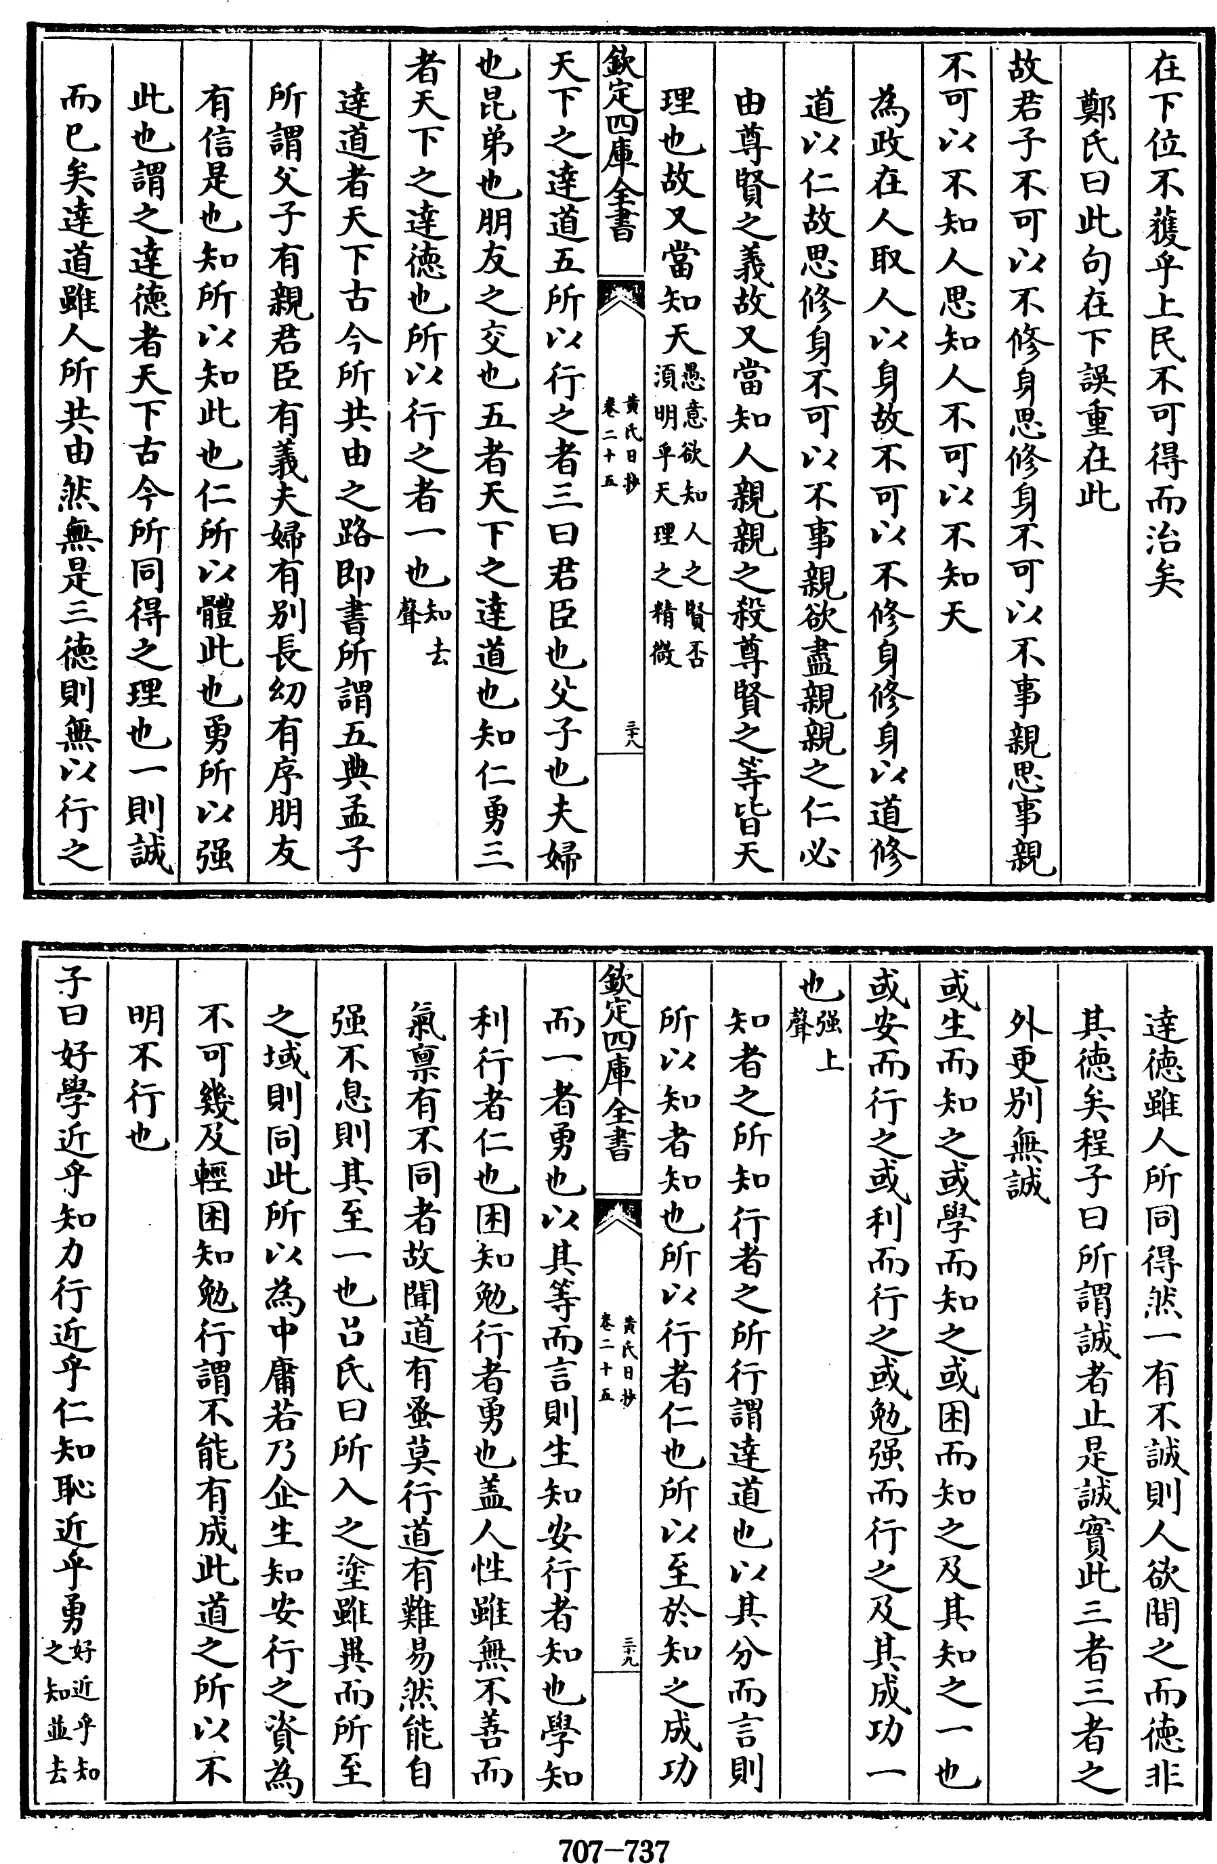 在下位不獲乎上民不可得而治矣
鄭氏曰此句在下誤重在此
故君子不可以不修身思修身不可以不事親思事親
不可以不知人思知人不可以不知天
為政在人取人以身故不可以不修身修身以道修
道以仁故思修身不可以不事親欲盡親親之仁必
由尊賢之義故又當知人親親之殺尊賢之等皆天
理也故又當知天愚意欲知人之賢否
湏明乎天理之精微
欽定四庫全書
黄氏日抄
卷二十五
三十八
天下之達道五所以行之者三曰君臣也父子也夫婦
也昆弟也朋友之交也五者天下之達道也知仁勇三
者天下之達德也所以行之者一也知去
聲
達道者天下古今所共由之路即書所謂五典孟子
所謂父子有親君臣有義夫婦有别長幼有序朋友
有信是也知所以知此也仁所以體此也勇所以强
此也謂之達德者天下古今所同得之理也一則誠
而已矣達道雖人所共由然無是三德則無以行之
達德雖人所同得然一有不誠則人欲間之而德非
其德矣程子曰所謂誠者止是誠實此三者三者之
外更别無誠
或生而知之或學而知之或困而知之及其知之一也
或安而行之或利而行之或勉强而行之及其成功一
也强上
聲
知者之所知行者之所行謂達道也以其分而言則
所以知者知也所以行者仁也所以至於知之成功
欽定四庫全書
黄氏日抄
卷二十五
三十九
而一者勇也以其等而言則生知安行者知也學知
利行者仁也困知勉行者勇也盖人性雖無不善而
氣禀有不同者故聞道有蚤莫行道有難易然能自
强不息則其至一也吕氏曰所入之塗雖異而所至
之域則同此所以為中庸若乃企生知安行之資為
不可幾及輕困知勉行謂不能有成此道之所以不
明不行也
子曰好學近乎知力行近乎仁知恥近乎勇好近乎知
之知並去
707-737